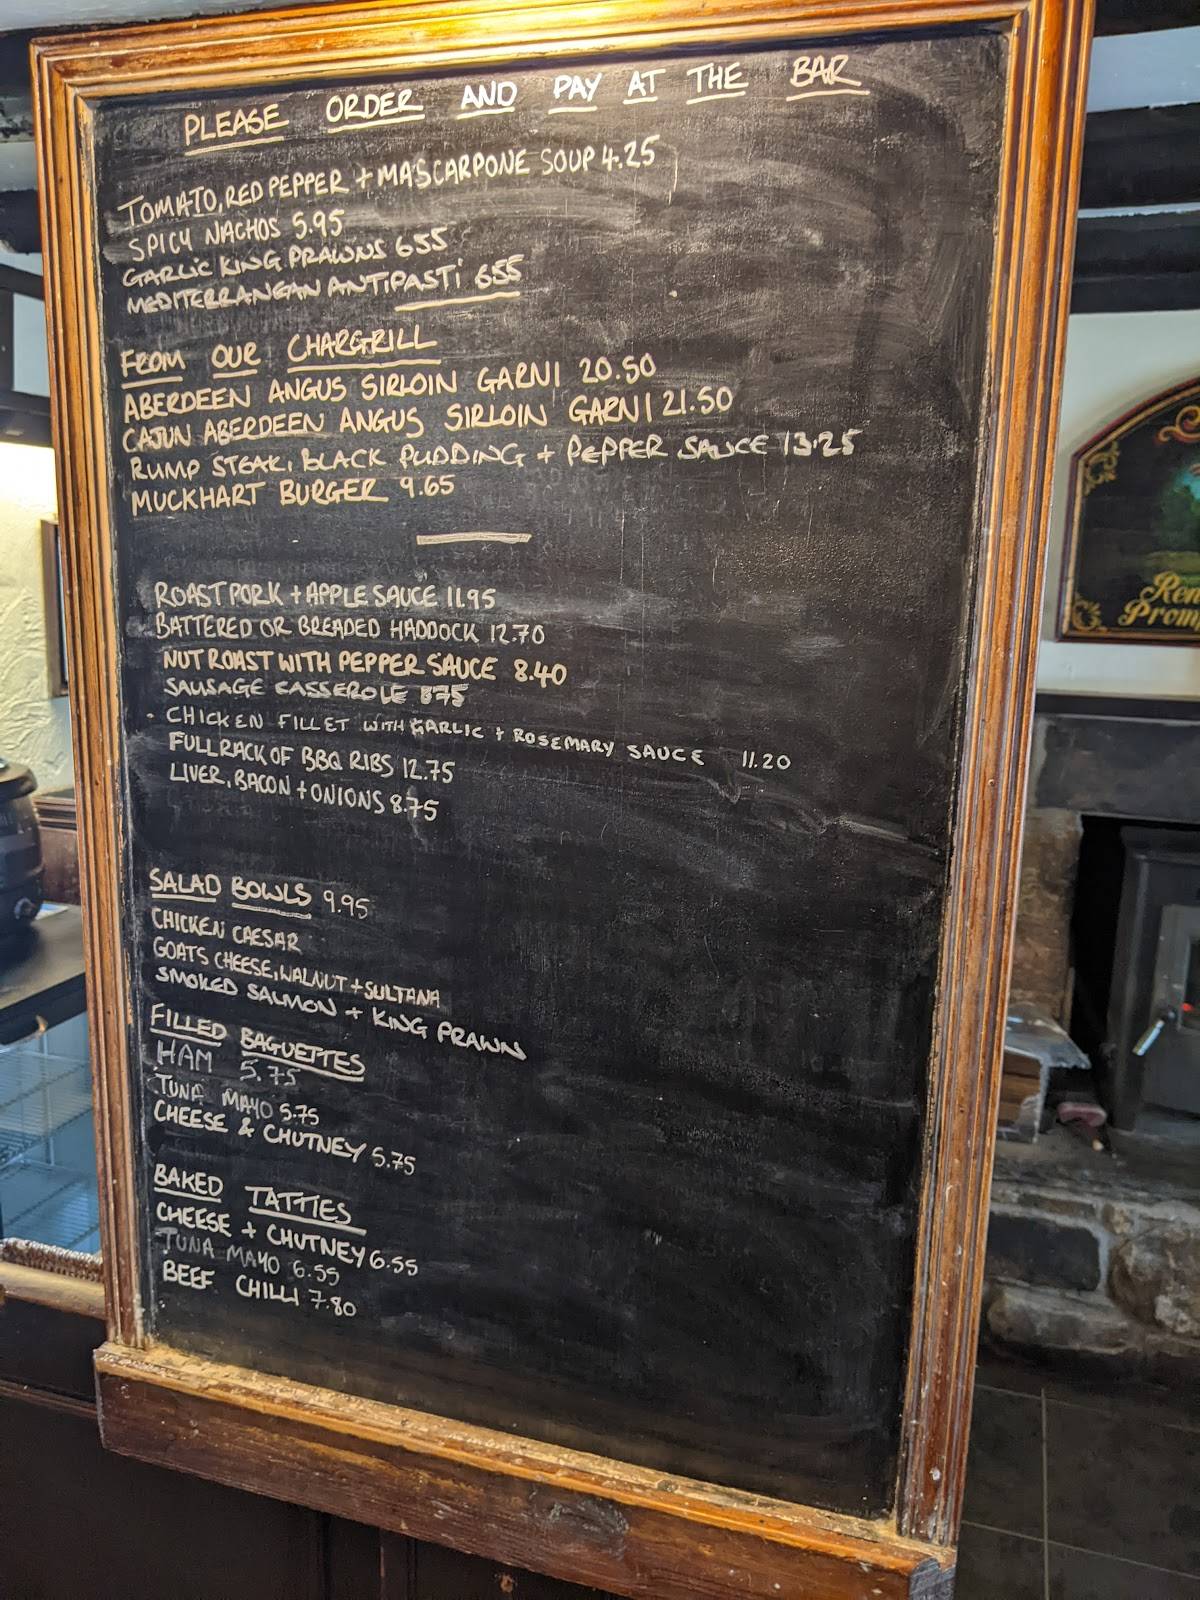 PLEASE ORDER AND PAY AT THE BAR
TOMATO, RED PEPPER + MASCARPONE SOUP 4.25
SPICY NACHOS 5.95
GARLIC KING PRAWNS 655
MEDITERRANEAN ANTIPASTI 655
FROM OUR CHARGRILL
ABERDEEN ANGUS SIRLOIN GARNI 20.50
CAJUN ABERDEEN ANGUS SIRLOIN GARNI 21.50
RUMP STEAK, BLACK PUDDING + PEPPER SAUCE 13.25
MUCKHART BURGER 9.65
ROAST PORK + APPLE SAUCE 11.95
BATTERED OR BREADED HADDOCK 12.70
NUT ROAST WITH PEPPER SAUCE 8.40
SAUSAGE CASSEROLE 875
CHICKEN FILLET WITH GARLIC + ROSEMARY SAUCE 11.20
FULL RACK OF BBQ RIBS 12.75
LIVER, BACON + ONIONS 8.75
SALAD BOWLS 9.95
CHICKEN CAESAR
GOATS CHEESE, WALNUT + SULTANA
SMOKED SALMON + KING PRAWN
FILLED BAGUETTES
HAM 5.75
TUNA MAYO 5.75
CHEESE & CHUTNEY 5.75
BAKED TATTIES
CHEESE + CHUTNEY 6.55
TUNA MAYO 6.55
BEEF CHILLI 7.80